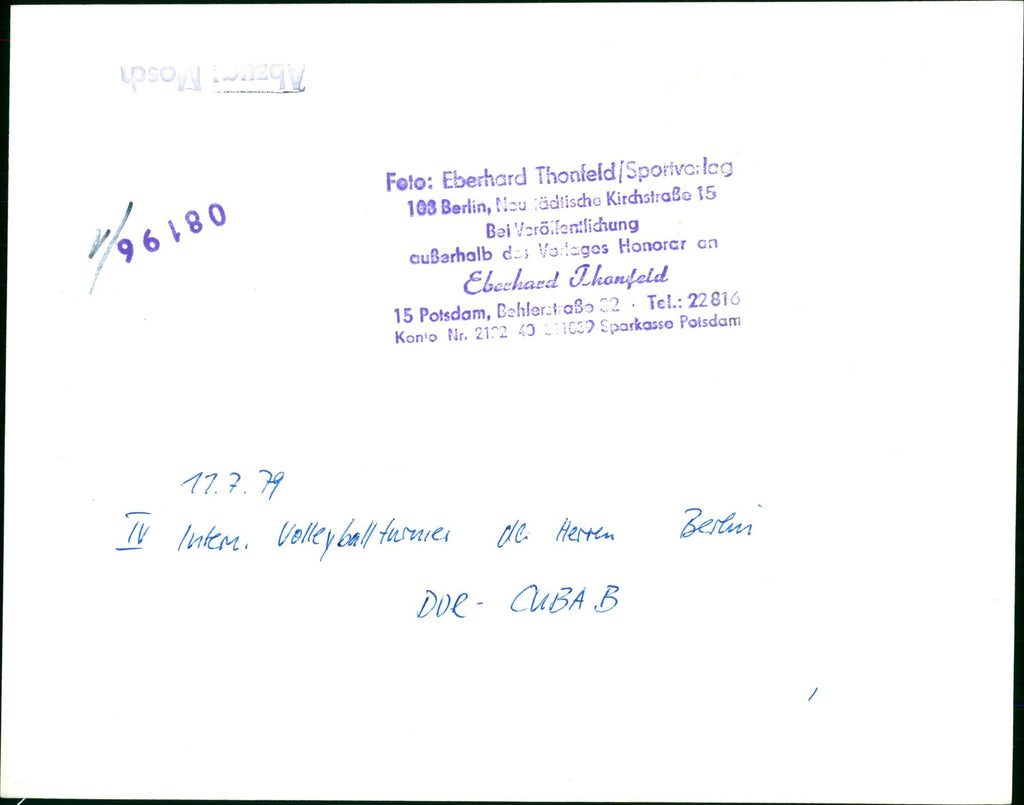 Abzug: Mosch
Foto: Eberhard Thonfeld/Sportverlag
108 Berlin, Neustädtische Kirchstraße 15
Bei Veröffentlichung
außerhalb des Verlages Honorar an
Eberhard Thonfeld
15 Potsdam, Behlerstraße 32 · Tel.: 22816
Konto Nr. 40 Sparkasse Potsdam
96180
11.7.79
IV Intern. Volleyballturnier der Herren Berlin
DDR - CUBA B